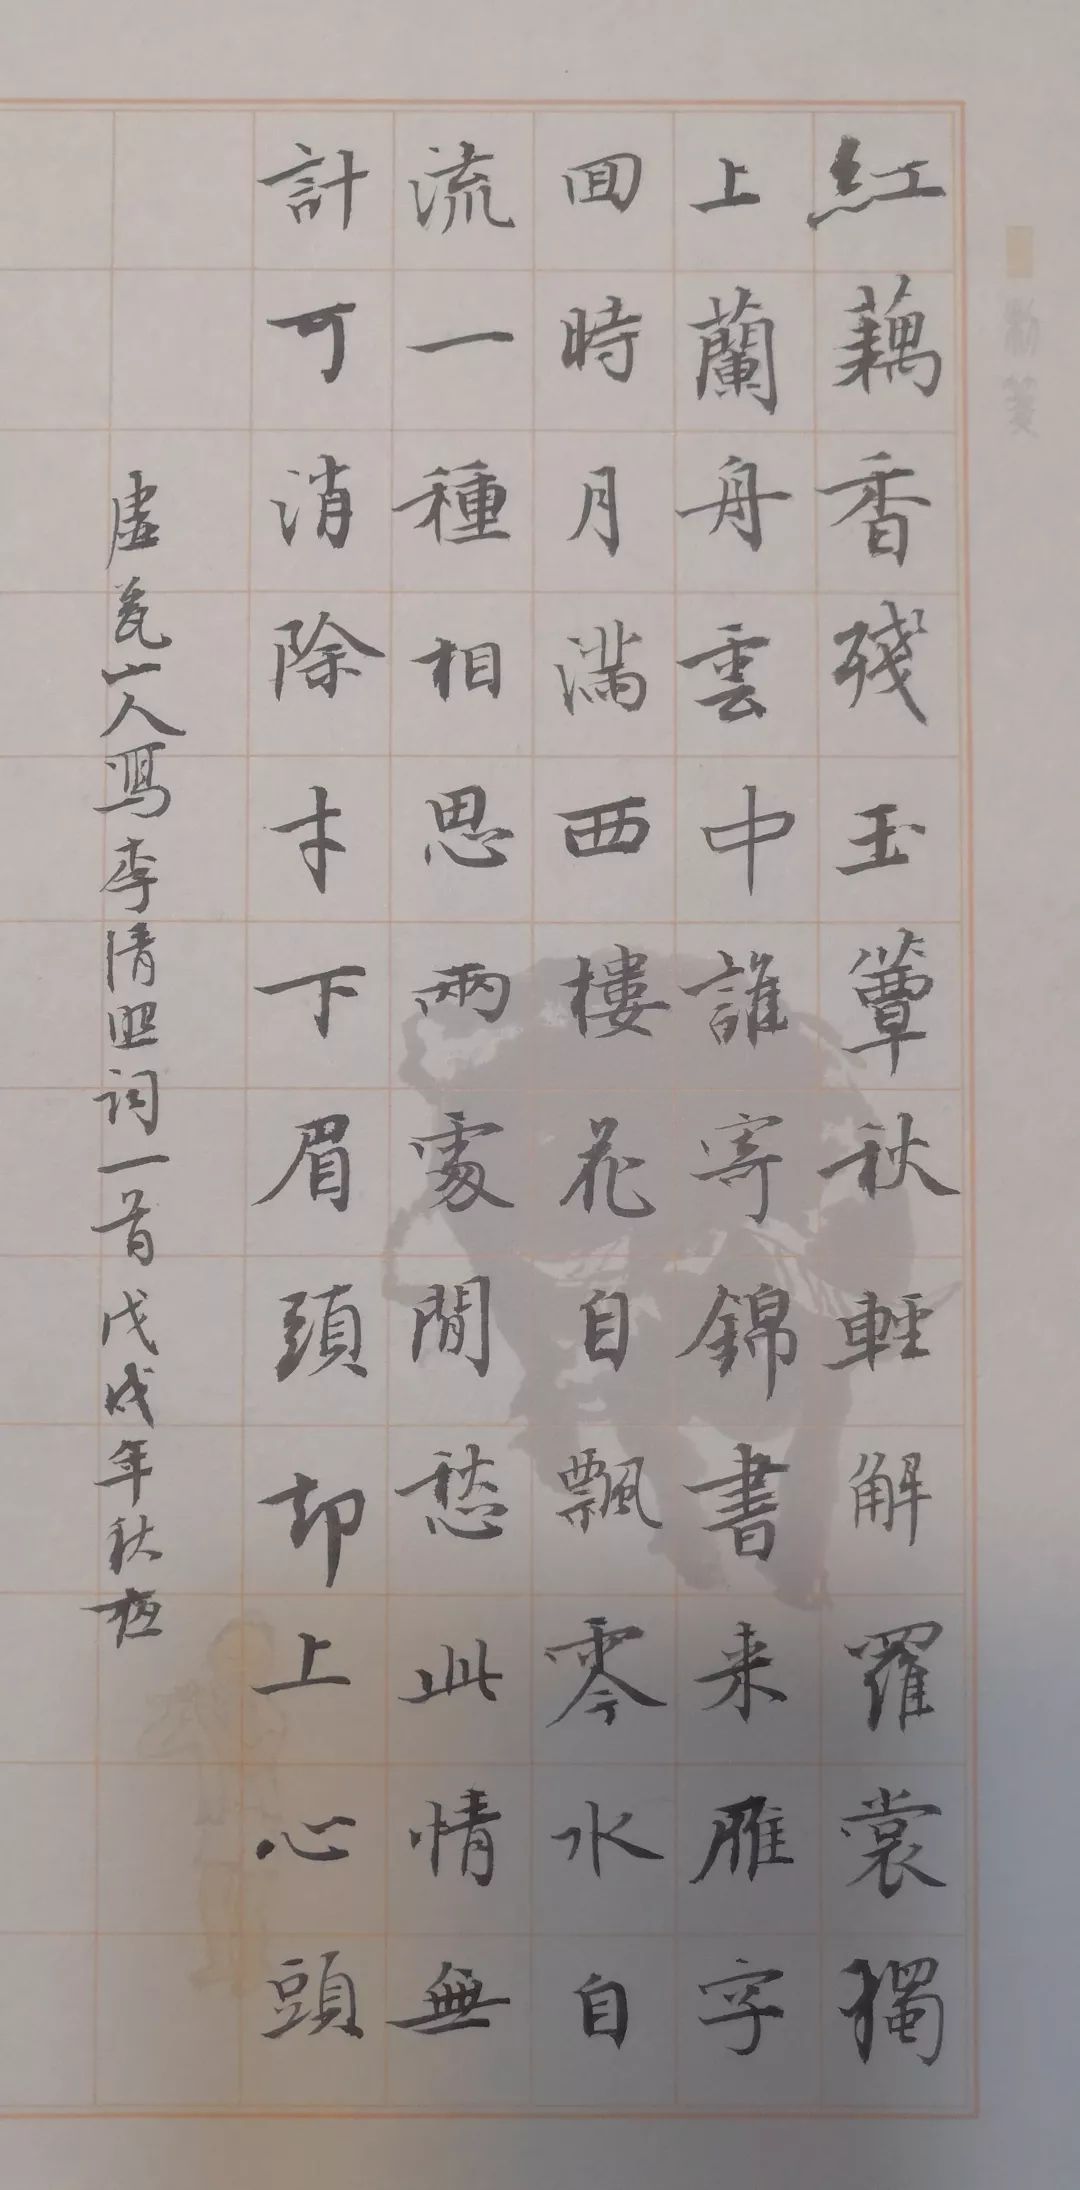 紅藕香殘玉簟秋輕解羅裳獨
上蘭舟雲中誰寄錦書来雁字
囬時月滿西樓花自飄零水自
流一種相思兩處閒愁此情無
計可消除才下眉頭却上心頭
虚瓮山人冩李清照词一首戊戌年秋夜